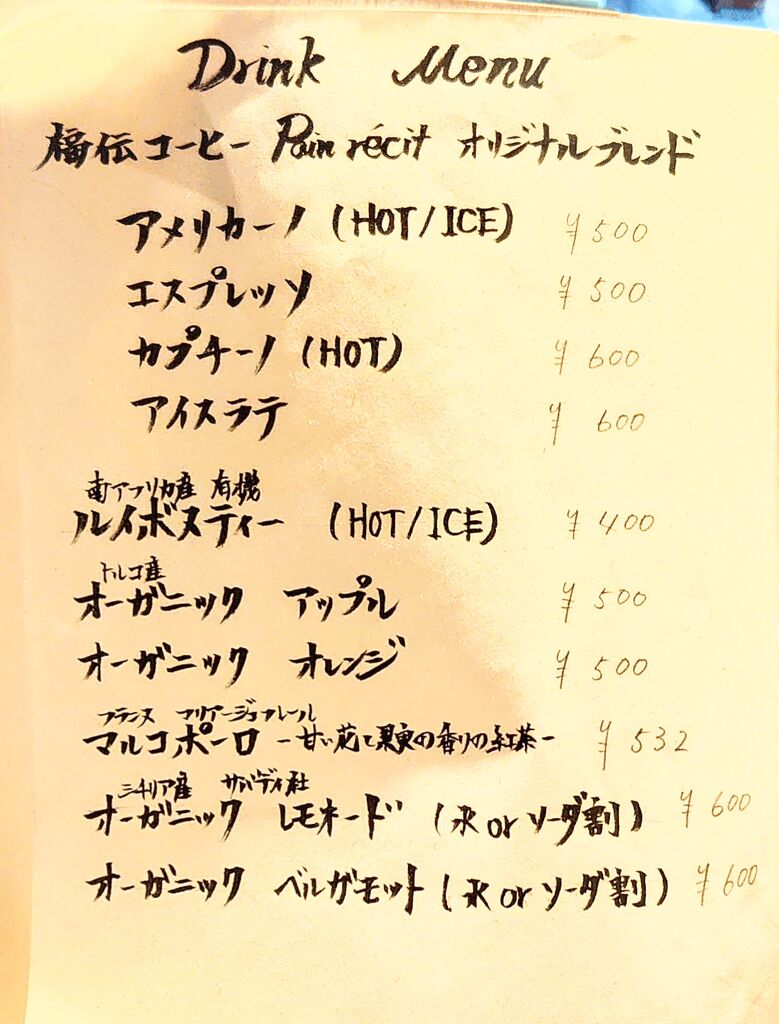 Drink Menu
福伝コーヒー Pain récit オリジナルブレンド
アメリカーノ (HOT/ICE) ¥500
エスプレッソ ¥500
カプチーノ (HOT) ¥600
アイスラテ ¥600
南アフリカ産 有機
ルイボスティー (HOT/ICE) ¥400
トルコ産
オーガニック アップル ¥500
オーガニック オレンジ ¥500
フランス マリアージュフレール
マルコポーロ -甘い花と果実の香りの紅茶- ¥532
シチリア産 サバディ社
オーガニック レモネード (水 or ソーダ割) ¥600
オーガニック ベルガモット (水 or ソーダ割) ¥600